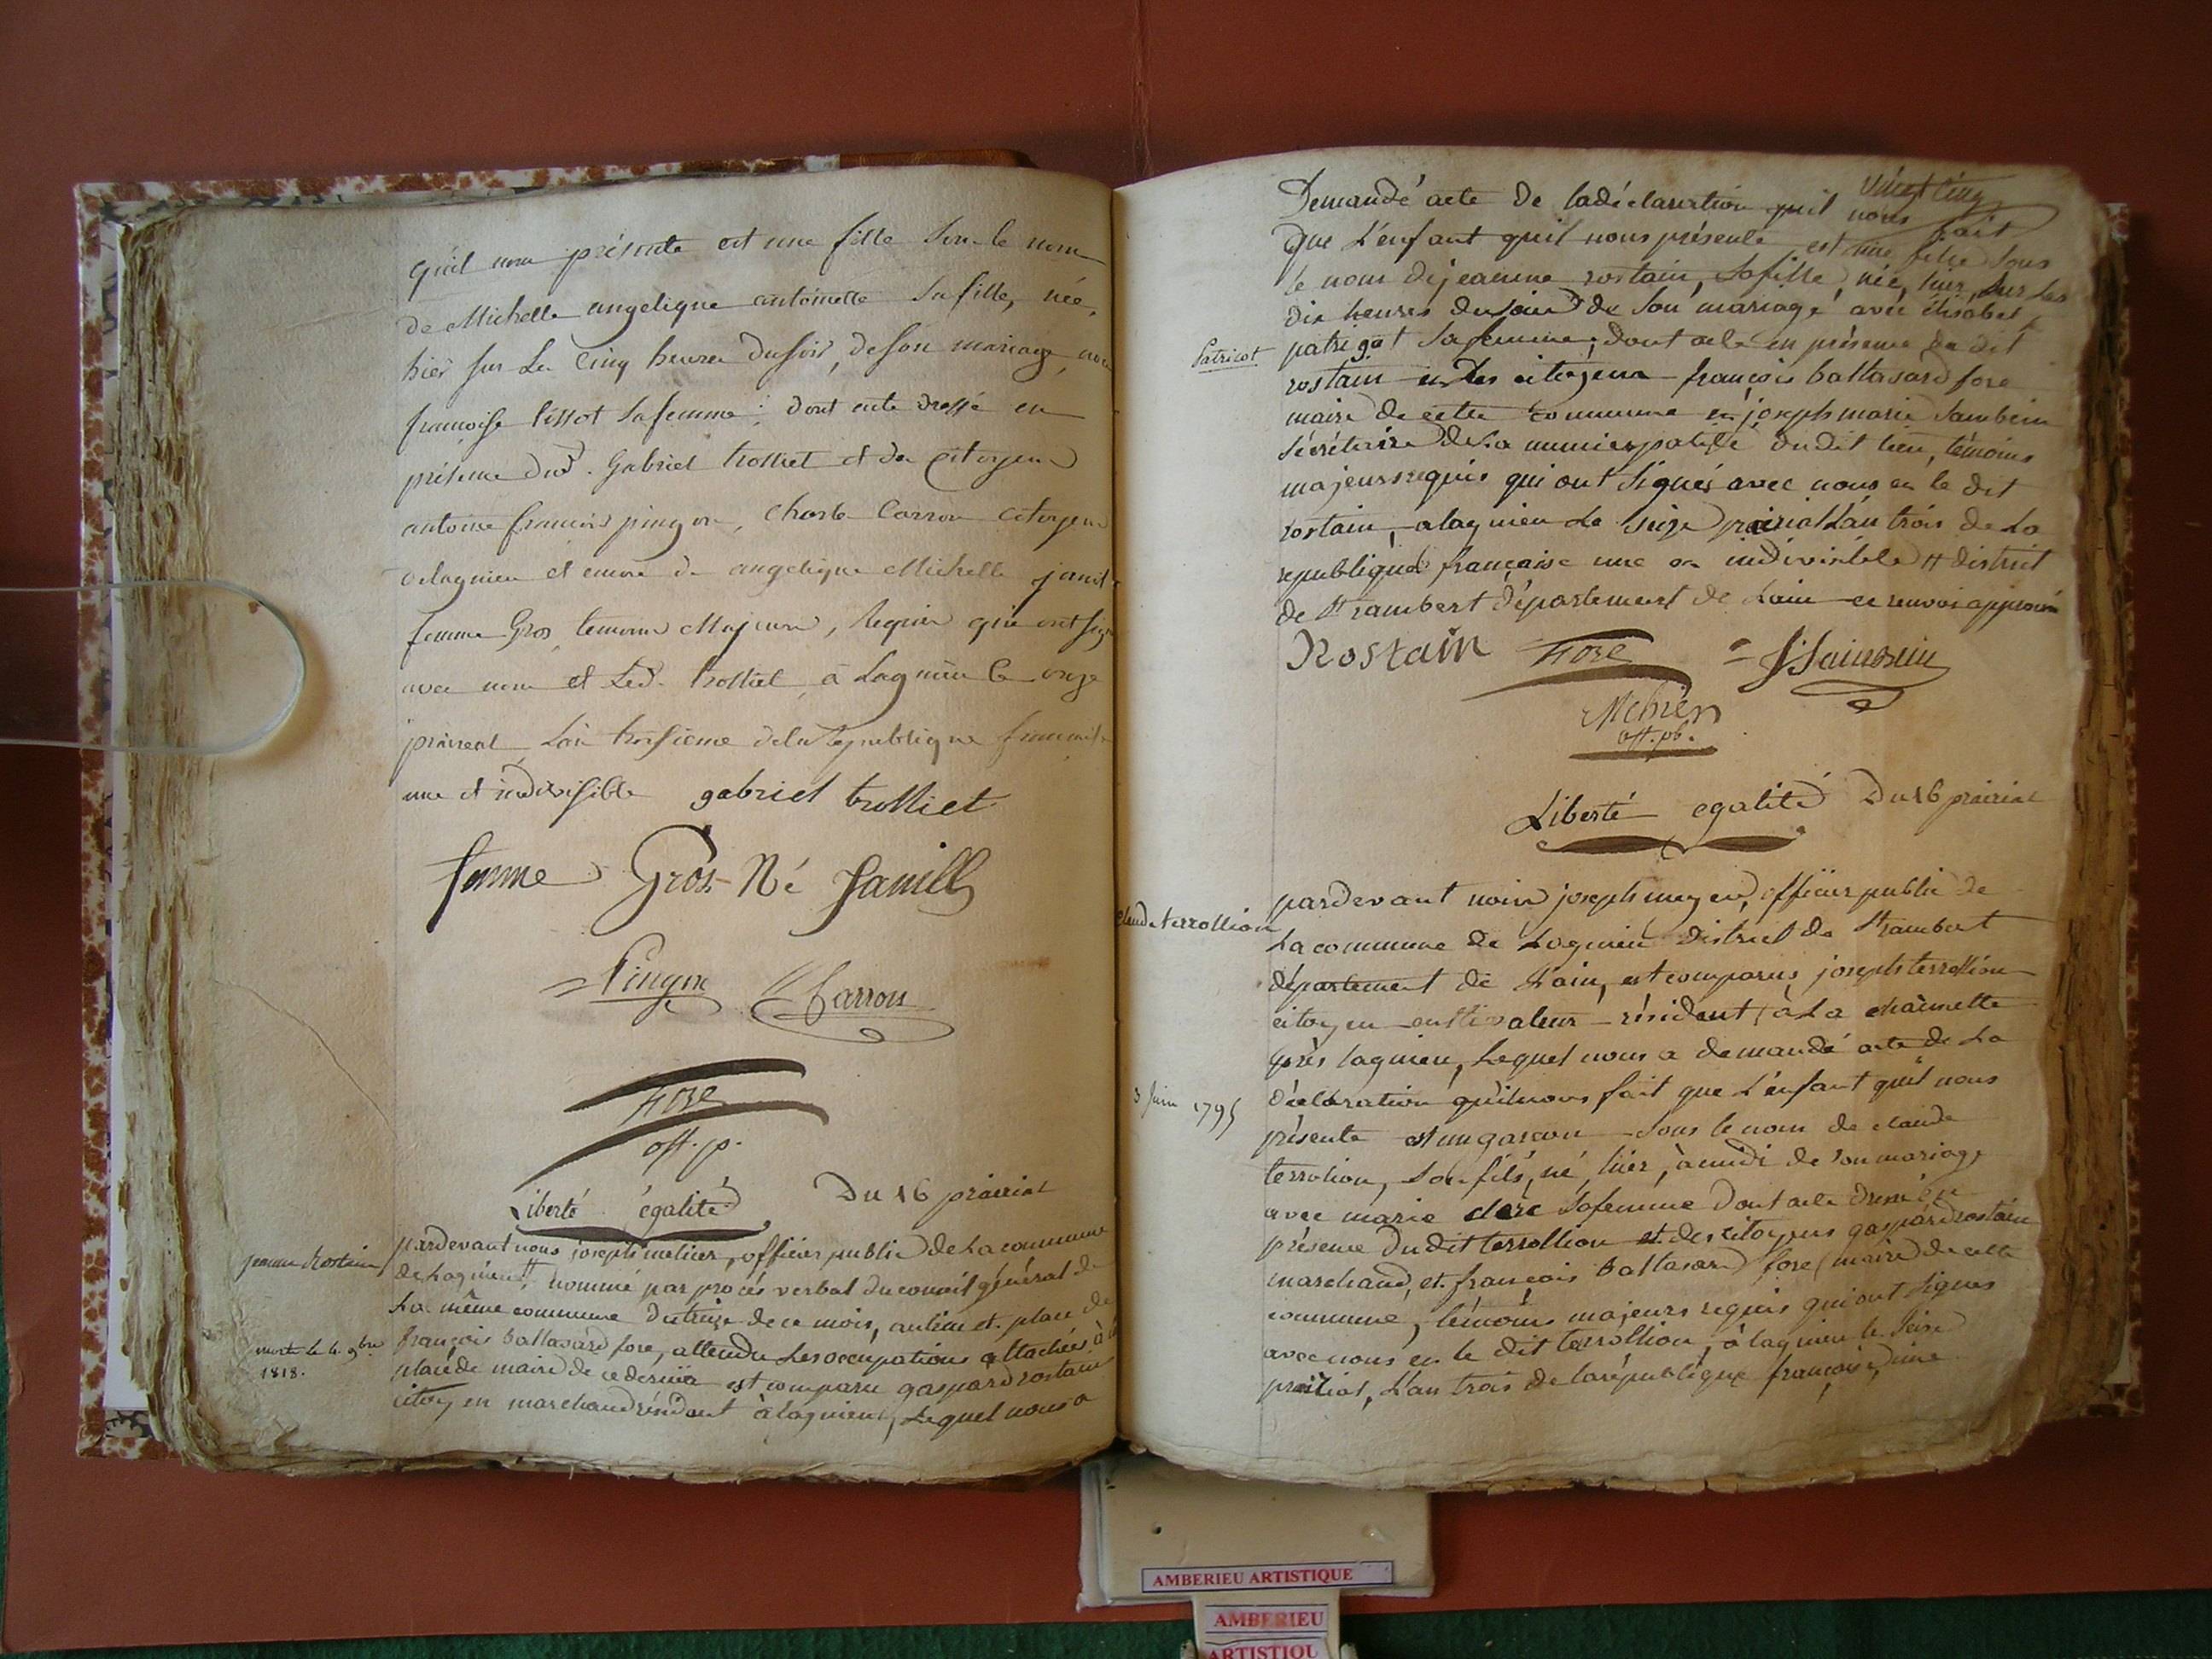 qu'il nous présente est une fille sous le nom
de Michelle angelique antoinette sa fille, née
hier sur les cinq heures du soir, de son mariage avec
françoise sa femme; dont acte dressé en
présence dud. Gabriel trolliet et des citoyens
antoine françois pingon, Charle Carron citoyens
de lagnieu et encore de angelique Michelle
femme Gros, temoins Majeurs, Requis qui ont signé
avec nous et led. trolliet à Lagnieu le onze
prairial L'an troisieme de la republique francaise
une et indivisible gabriel trolliet
femme Gros Né Janill
Pingon Carron
Fore
off. p.
Liberté égalité Du 16 prairial
jeanne Rostain
pardevant nous joseph metier, officier public de La commune
de Lagnieu # nommé par procés verbal du conseil général de
La même commune du treize de ce mois, au lieu et place de
morte le 4. 9bre
1818.
françois baltasard fore, attendu Les occupations attachées à la
place de maire de ce dernier est comparu gaspard rostain
citoyen marchand résident à lagnieu, Lequel nous a
vingt cinq
Demandé acte de la déclaration qu'il nous fait
que L'enfant qu'il nous présente est une fille sous
le nom de jeanne rostain, sa fille, née, hier, sur les
dix heures du soir de son mariage avec élisabet
Patricot
patrigot sa femme; dont acte en présence du dit
rostain et des citoyens françois baltasard fore
maire de cette commune et joseph marie
sécrétaire de La municipalité du dit lieu, témoins
majeurs requis qui ont signés avec nous et le dit
rostain, a lagnieu Le seize prairial L'an trois de La
republique française une et indivisible # district
de St rambert département de Lain ce renvoi approuvé
Rostain Fore
off. pb.
Liberté egalité Du 16 prairial
Claude terrollion
pardevant nous joseph officier public de
La commune de Lagnieu district de St rambert
département de L'ain, est comparus joseph terrollion
citoyen cultivateur résident à La chainette
près lagnieu, Lequel nous a demandé acte de La
3 Juin 1795
déclaration qu'il nous fait que L'enfant qu'il nous
présente est un garçon sous le nom de claude
terrolion, son fils, né, hier, à midi de son mariage
avec marie clerc sa femme dont acte dressé en
présence du dit terrollion et des citoyens gaspard rostain
marchand, et françois baltasard fore maire de cette
commune, témoins majeurs requis qui ont signes
avec nous et le dit terrollion, à lagnieu le seize
prairial, L'an trois de la république françoise, une
AMBERIEU ARTISTIQUE
AMBERIEU
ARTISTIQU